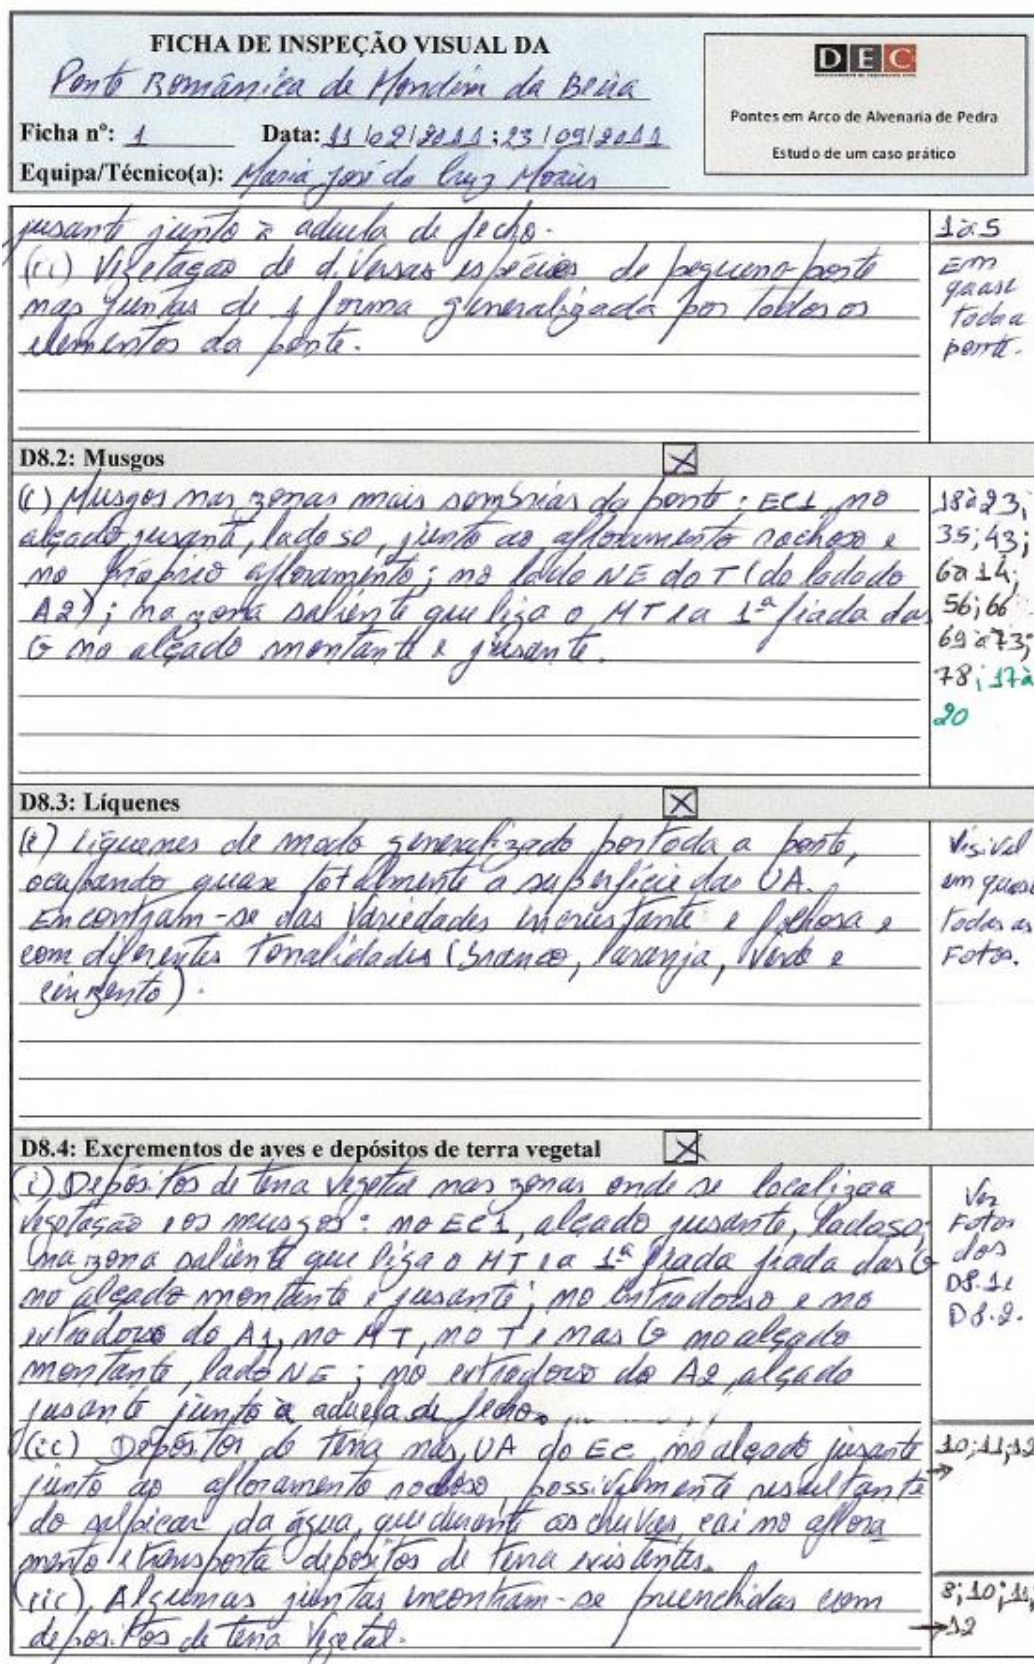 FICHA DE INSPEÇÃO VISUAL DA
Ponte Românica de Mondim da Beira
Ficha nº: 1 Data: 11/02/2011; 23/09/2011
Equipa/Técnico(a): Maria José da Cruz Morais
DEC
Pontes em Arco de Alvenaria de Pedra
Estudo de um caso prático
jusante junto à aduela de fecho.
1 à 5
(ii) Vegetação de diversas espécies de pequeno porte
nas juntas de forma generalizada por todos os
elementos da ponte.
Em
quase
toda a
ponte.
D8.2: Musgos X
(i) Musgos nas zonas mais sombrias da ponte: EC1, no
alçado jusante, lado SO, junto ao afloramento rochoso e
no próprio afloramento; no lado NE do T (do lado do
A2); na zona saliente que liga o MT e a 1ª fiada das
G no alçado montante e jusante.
18 à 23;
35; 43;
6 a 14;
56; 66
69 à 73;
78; 17 à
20
D8.3: Líquenes X
(i) Líquenes de modo generalizado por toda a ponte,
ocupando quase totalmente a superfície das UA.
Encontram-se das variedades incrustante e folhosa e
com diferentes tonalidades (branco, laranja, verde e
cinzento).
Visível
em quase
todas as
Fotos.
D8.4: Excrementos de aves e depósitos de terra vegetal X
(i) Depósitos de terra vegetal nas zonas onde se localiza a
vegetação e os musgos: no EC1, alçado jusante, lado SO;
na zona saliente que liga o MT e a 1ª fiada fiada das G
no alçado montante e jusante; no intradorso e no
extradorso do A1, no MT, no T e nas G no alçado
montante, lado NE; no extradorso do A2, alçado
jusante junto à aduela de fecho.
Ver
Fotos
dos
D8.1 e
D8.2.
(ii) Depósitos de terra nas UA do EC no alçado jusante
junto ao afloramento rochoso, possivelmente resultante
do salpicar da água, que durante as chuvas, cai no aflora
mento e transporta depósitos de terra existentes.
10; 11; 12
→
(iii) Algumas juntas encontram-se preenchidas com
depósitos de terra vegetal.
8; 10; 11;
→12